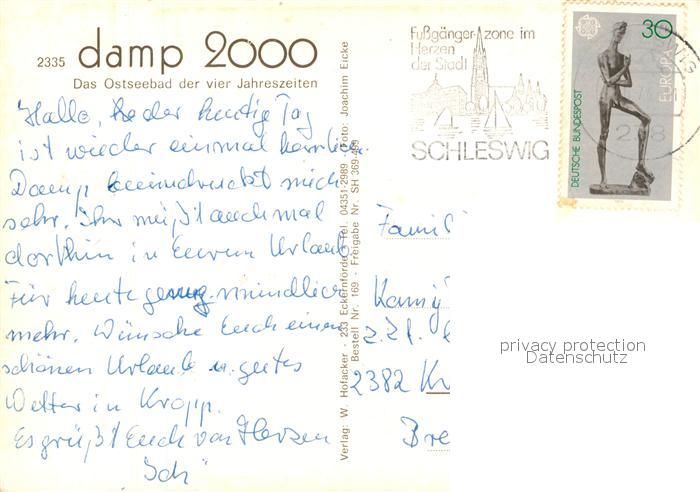 2335 damp 2000
Das Ostseebad der vier Jahreszeiten
Hallo, der heutige Tag
ist wieder einmal herrlich.
Damp beeindruckt mich
sehr. Ihr müßt auch mal
dorthin in Eurem Urlaub
Für heute genug. mündlich
mehr. Wünsche Euch einen
schönen Urlaub u. gutes
Wetter in Kropp.
Es grüßt Euch von Herzen
Verlag: W. Hofacker - 233 Eckernförde, Tel. 04351-2989 Foto: Joachim Eicke
Bestell Nr. 169 - Freigabe Nr. SH 369-499
Fußgänger zone im
Herzen
der Stadt
SCHLESWIG
30
EUROPA
DEUTSCHE BUNDESPOST
Famil
z.Zt.
2382 Kr
Bre
privacy protection
Datenschutz